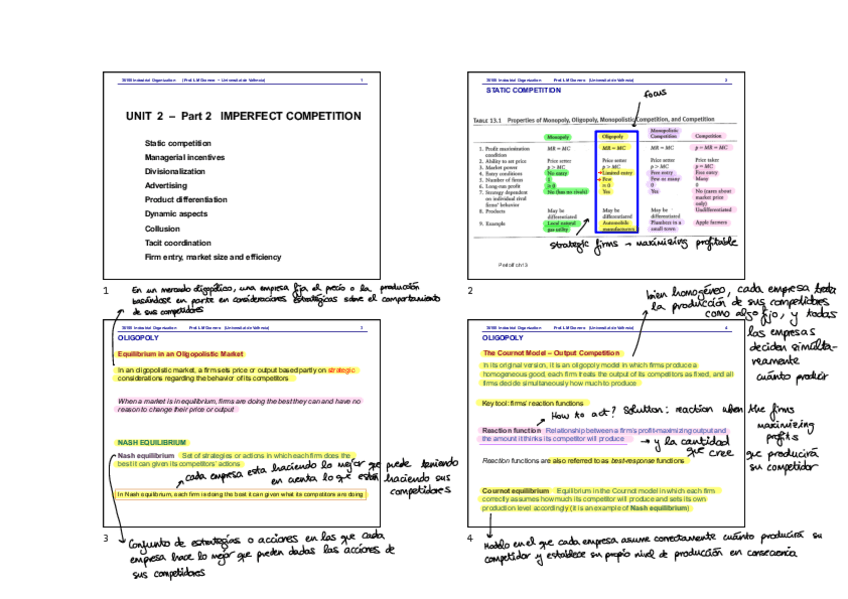 36188 Industrial Organization (Prof. I.M Dorrero – Universitat de València) 1
UNIT 2 – Part 2 IMPERFECT COMPETITION
Static competition
Managerial incentives
Divisionalization
Advertising
Product differentiation
Dynamic aspects
Collusion
Tacit coordination
Firm entry, market size and efficiency
1
Industrial Organization (Universitat de València) 2
STATIC COMPETITION
focus
TABLE 13.1 Properties of Monopoly, Oligopoly, Monopolistic Competition, and Competition
Monopoly Oligopoly Monopolistic Competition Competition
1. Profit maximization condition MR = MC MR = MC MR = MC p = MR = MC
2. Ability to set price Price setter Price setter Price setter Price taker
3. Market power p > MC p > MC p > MC p = MC
4. Entry conditions No entry Limited entry Free entry Free entry
5. Number of firms 1 Few Few or many Many
6. Long-run profit ≥ 0 ≥ 0 0 0
7. Strategy dependent on individual rival firms' behavior No (has no rivals) Yes Yes No (cares about market price only)
8. Products May be differentiated May be differentiated May be differentiated Undifferentiated
9. Example Local natural gas utility Automobile manufacturers Plumbers in a small town Apple farmers
strategic firms → maximizing profitable
2
En un mercado oligopólico, una empresa fija el precio o la producción
basándose en parte en consideraciones estratégicas sobre el comportamiento
de sus competidores
Industrial Organization (Universitat de València) 3
OLIGOPOLY
Equilibrium in an Oligopolistic Market
In an oligopolistic market, a firm sets price or output based partly on strategic
considerations regarding the behavior of its competitors
When a market is in equilibrium, firms are doing the best they can and have no
reason to change their price or output
NASH EQUILIBRIUM
Nash equilibrium Set of strategies or actions in which each firm does the
best it can given its competitors' actions
cada empresa esta haciendo lo mejor que puede teniendo
en cuenta lo que están haciendo sus
competidores
In Nash equilibrium, each firm is doing the best it can given what its competitors are doing
3
Conjunto de estrategias o acciones en las que cada
empresa hace lo mejor que pueden dadas las acciones de
sus competidores
bien homogéneo, cada empresa trata
la producción de sus competidores
como algo fijo, y todas
las empresas
deciden simultá-
neamente
cuánto producir
Industrial Organization (Universitat de València) 4
OLIGOPOLY
The Cournot Model – Output Competition
In its original version, it is an oligopoly model in which firms produce a
homogeneous good, each firm treats the output of its competitors as fixed, and all
firms decide simultaneously how much to produce
Key tool: firms' reaction functions
How to act? Solution: reaction when the firms
maximizing
profits
Reaction function Relationship between a firm's profit-maximizing output and
the amount it thinks its competitor will produce
→ y la cantidad
que cree que producirá
su competidor
Reaction functions are also referred to as best-response functions
Cournot equilibrium Equilibrium in the Cournot model in which each firm
correctly assumes how much its competitor will produce and sets its own
production level accordingly (it is an example of Nash equilibrium)
4
Modelo en el que cada empresa asume correctamente cuánto producirá su
competidor y establece su propio nivel de producción en consecuencia